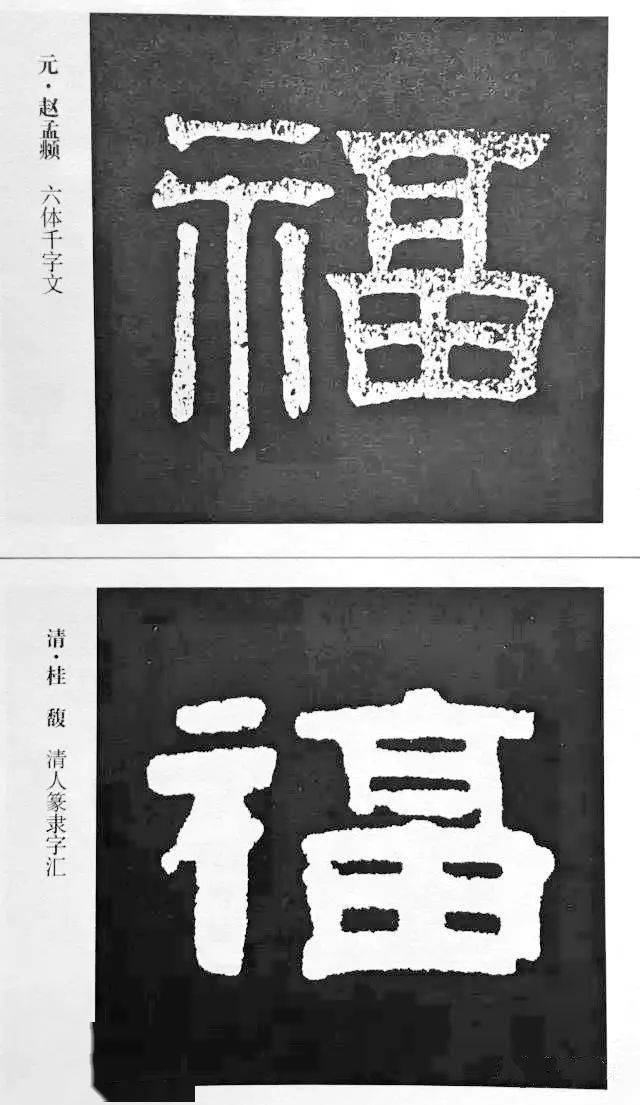 元·赵孟頫 六体千字文
福
清·桂馥 清人篆隶字汇
福